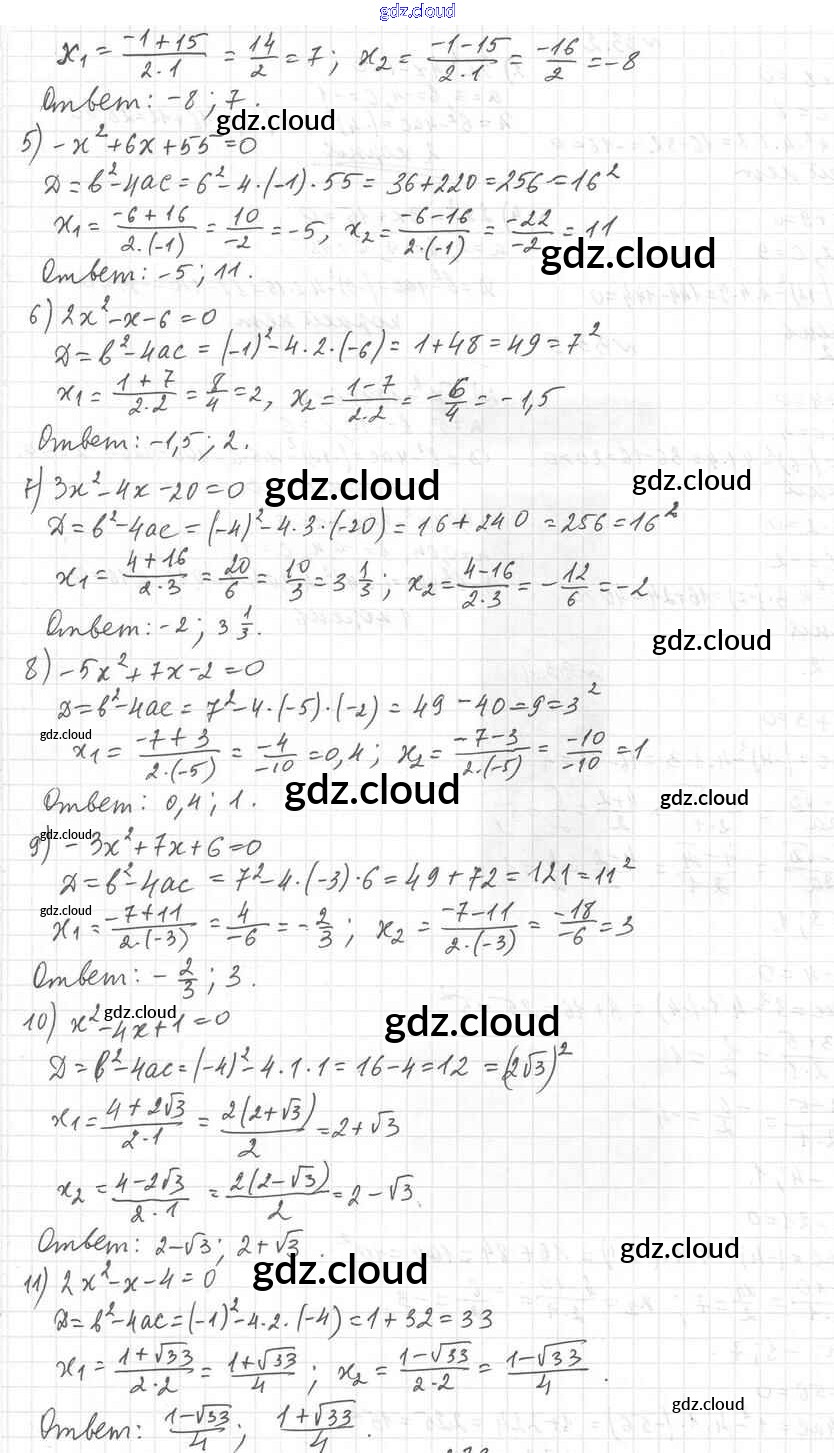 gdz.cloud
x₁ = (-1+15)/(2·1) = 14/2 = 7; x₂ = (-1-15)/(2·1) = -16/2 = -8
Ответ: -8; 7.
gdz.cloud
5) -x²+6x+55=0
D=b²-4ac=6²-4·(-1)·55=36+220=256=16²
x₁ = (-6+16)/(2·(-1)) = 10/-2 = -5, x₂ = (-6-16)/(2·(-1)) = -22/-2 = 11
gdz.cloud
Ответ: -5; 11.
6) 2x²-x-6=0
D=b²-4ac=(-1)²-4·2·(-6)=1+48=49=7²
x₁ = (1+7)/(2·2) = 8/4 = 2, x₂ = (1-7)/(2·2) = -6/4 = -1,5
Ответ: -1,5; 2.
7) 3x²-4x-20=0
gdz.cloud
gdz.cloud
D=b²-4ac=(-4)²-4·3·(-20)=16+240=256=16²
x₁ = (4+16)/(2·3) = 20/6 = 10/3 = 3 1/3; x₂ = (4-16)/(2·3) = -12/6 = -2
Ответ: -2; 3 1/3.
gdz.cloud
8) -5x²+7x-2=0
D=b²-4ac=7²-4·(-5)·(-2)=49-40=9=3²
gdz.cloud
x₁ = (-7+3)/(2·(-5)) = -4/-10 = 0,4; x₂ = (-7-3)/(2·(-5)) = -10/-10 = 1
Ответ: 0,4; 1.
gdz.cloud
gdz.cloud
gdz.cloud
9) -3x²+7x+6=0
D=b²-4ac=7²-4·(-3)·6=49+72=121=11²
gdz.cloud
x₁ = (-7+11)/(2·(-3)) = 4/-6 = -2/3; x₂ = (-7-11)/(2·(-3)) = -18/-6 = 3
Ответ: -2/3; 3.
gdz.cloud
10) x²-4x+1=0
gdz.cloud
D=b²-4ac=(-4)²-4·1·1=16-4=12=(2√3)²
x₁ = (4+2√3)/(2·1) = 2(2+√3)/2 = 2+√3
x₂ = (4-2√3)/(2·1) = 2(2-√3)/2 = 2-√3.
Ответ: 2-√3; 2+√3.
gdz.cloud
11) 2x²-x-4=0
gdz.cloud
D=b²-4ac=(-1)²-4·2·(-4)=1+32=33
x₁ = (1+√33)/(2·2) = (1+√33)/4; x₂ = (1-√33)/(2·2) = (1-√33)/4.
Ответ: (1-√33)/4; (1+√33)/4.
gdz.cloud